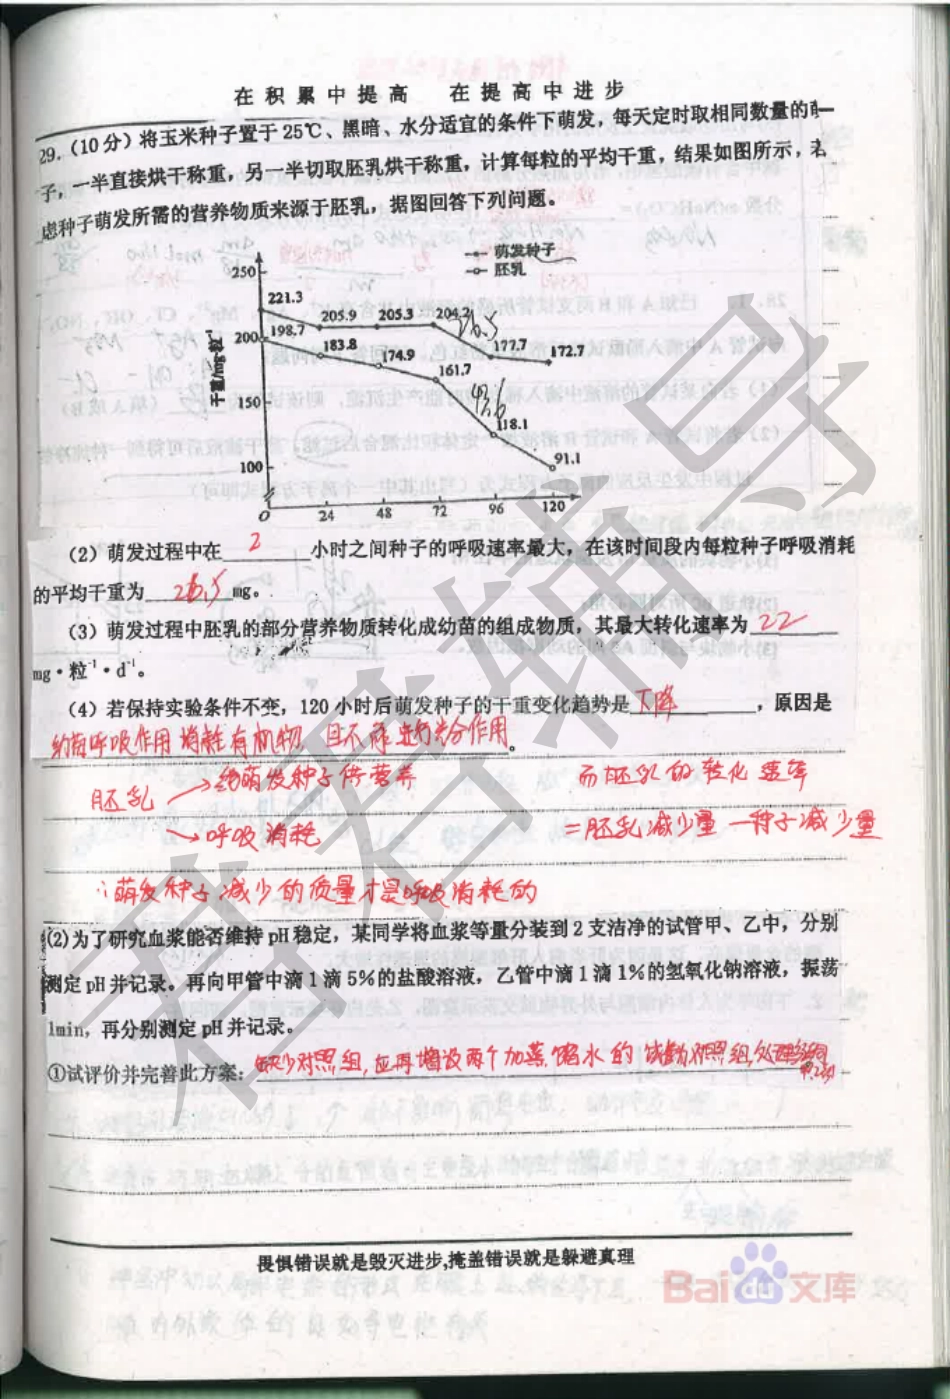 在积累中提高 在提高中进步
29.(10分)将玉米种子置于25℃、黑暗、水分适宜的条件下萌发，每天定时取相同数量的
子，一半直接烘干称重，另一半切取胚乳烘干称重，计算每粒的平均干重，结果如图所示，若
虑种子萌发所需的营养物质来源于胚乳，据图回答下列问题。
萌发种子
胚乳
干重/mg·粒⁻¹
250
200
150
100
221.3
205.9
205.3
204.2
177.7
172.7
198.7
183.8
174.9
161.7
118.1
91.1
26.5
43.6
0 24 48 72 96 120
(2) 萌发过程中在 2 小时之间种子的呼吸速率最大，在该时间段内每粒种子呼吸消耗
的平均干重为 26.5 mg。
(3) 萌发过程中胚乳的部分营养物质转化成幼苗的组成物质，其最大转化速率为 22
mg·粒⁻¹·d⁻¹。
(4) 若保持实验条件不变，120小时后萌发种子的干重变化趋势是 下降 ，原因是
幼苗呼吸作用消耗有机物，且不能进行光合作用。
胚乳 →给萌发种子供营养
→呼吸消耗
而胚乳的转化速率
=胚乳减少量一种子减少量
∴萌发种子减少的质量才是呼吸消耗的
(2)为了研究血浆能否维持pH稳定，某同学将血浆等量分装到2支洁净的试管甲、乙中，分别
测定pH并记录。再向甲管中滴1滴5%的盐酸溶液，乙管中滴1滴1%的氢氧化钠溶液，振荡
1min，再分别测定pH并记录。
①试评价并完善此方案：缺少对照组，应再增设两个加蒸馏水的试管为对照组,处理
畏惧错误就是毁灭进步,掩盖错误就是躲避真理
君君辅导
Bai du 文库